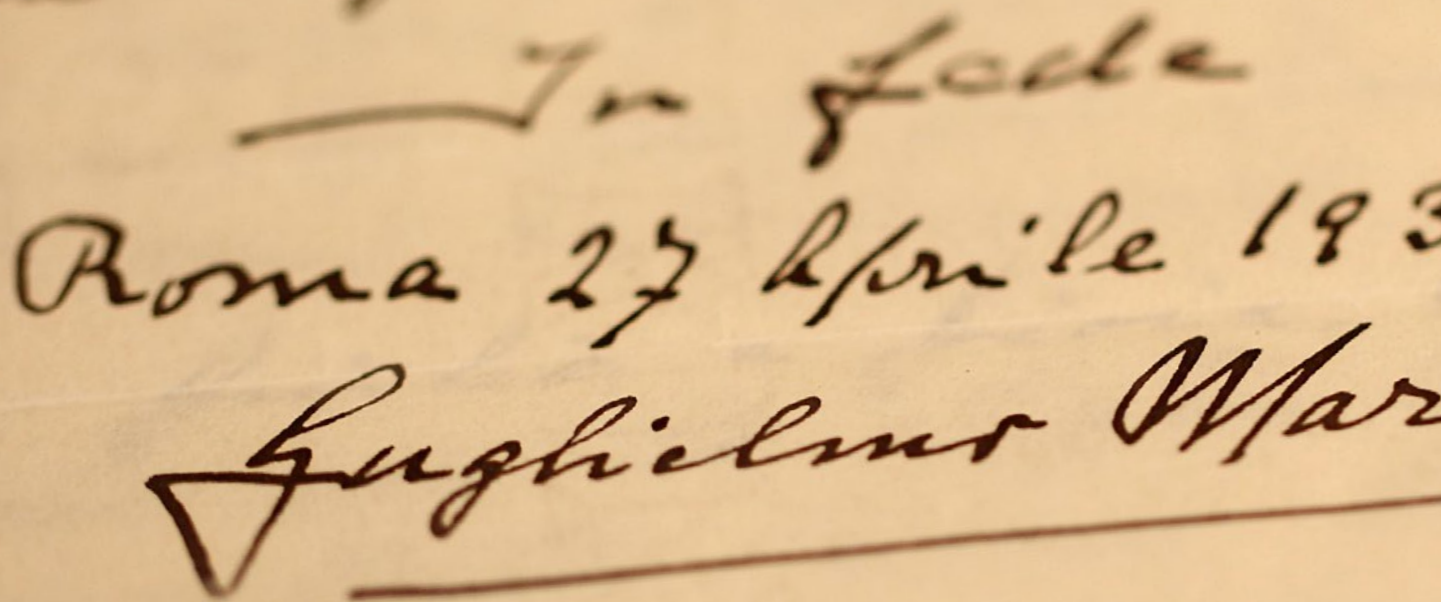 In fede
Roma 27 Aprile 193
Guglielmo Mar